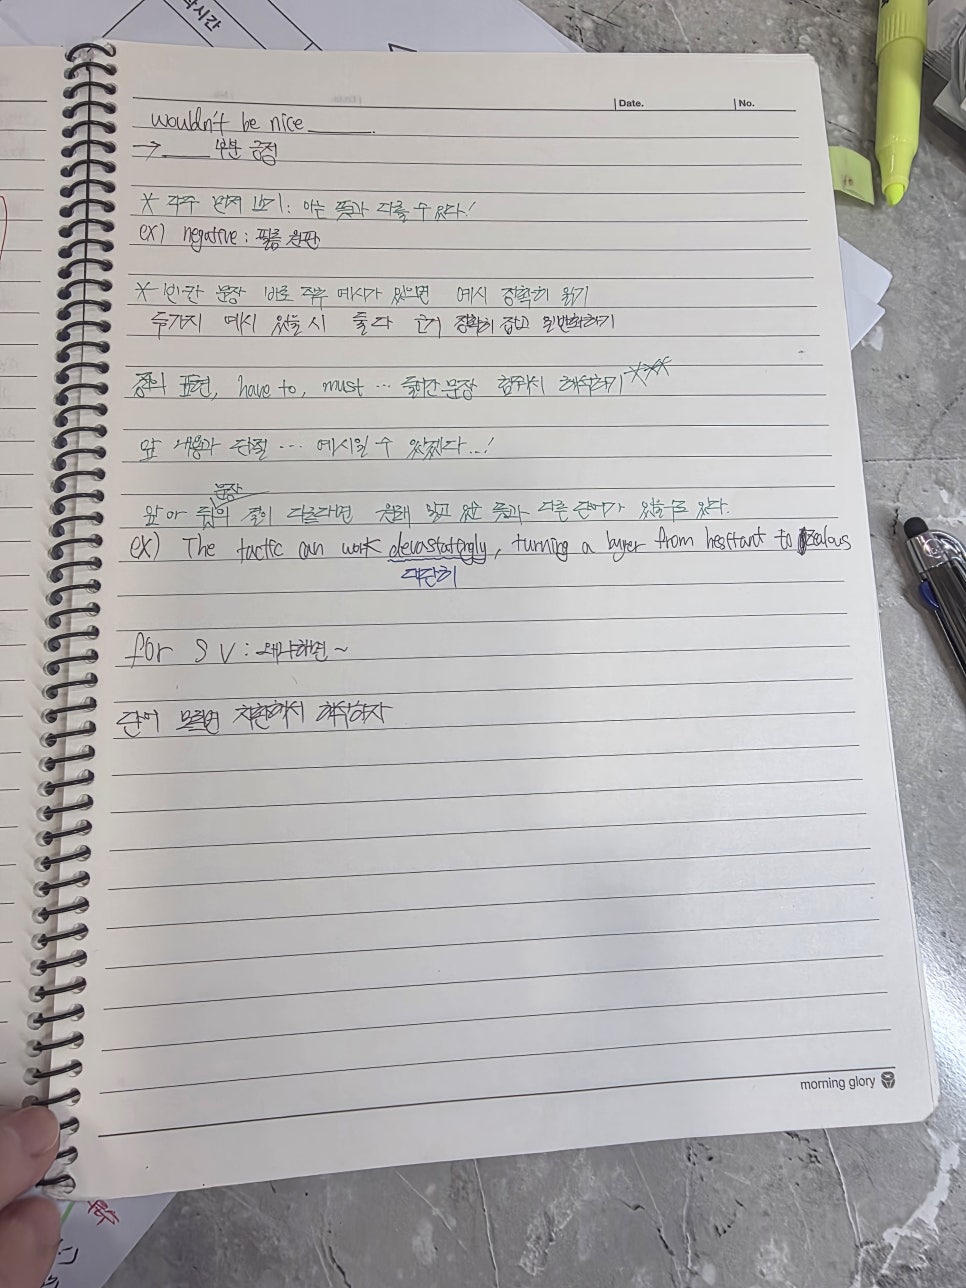 락시간
Date. No.
wouldn't be nice ______.
→ ____ 부분 긍정
* 각주 먼저 보기: 아는 뜻과 다를 수 있다!
ex) negative: 필름 원판
* 빈칸 문장 바로 예시가 있으면 예시 정확히 읽기
두가지 예시 있을 시 둘다 근거 정확히 잡고 일반화하기
표현, have to, must … 문장 해석하기 ***
앞 내용과 단절 … 예시일 수 있겠다..!
문장
앞아 뒤의 다르다면 원래 알고 있는 뜻과 다른 단어가 있을수도 있다.
ex) The tactic can work devastatingly, turning a buyer from hesitant to zealous
대단히
for S V: 왜냐하면 ~
단어 모르면 치환해서 해석하자
morning glory